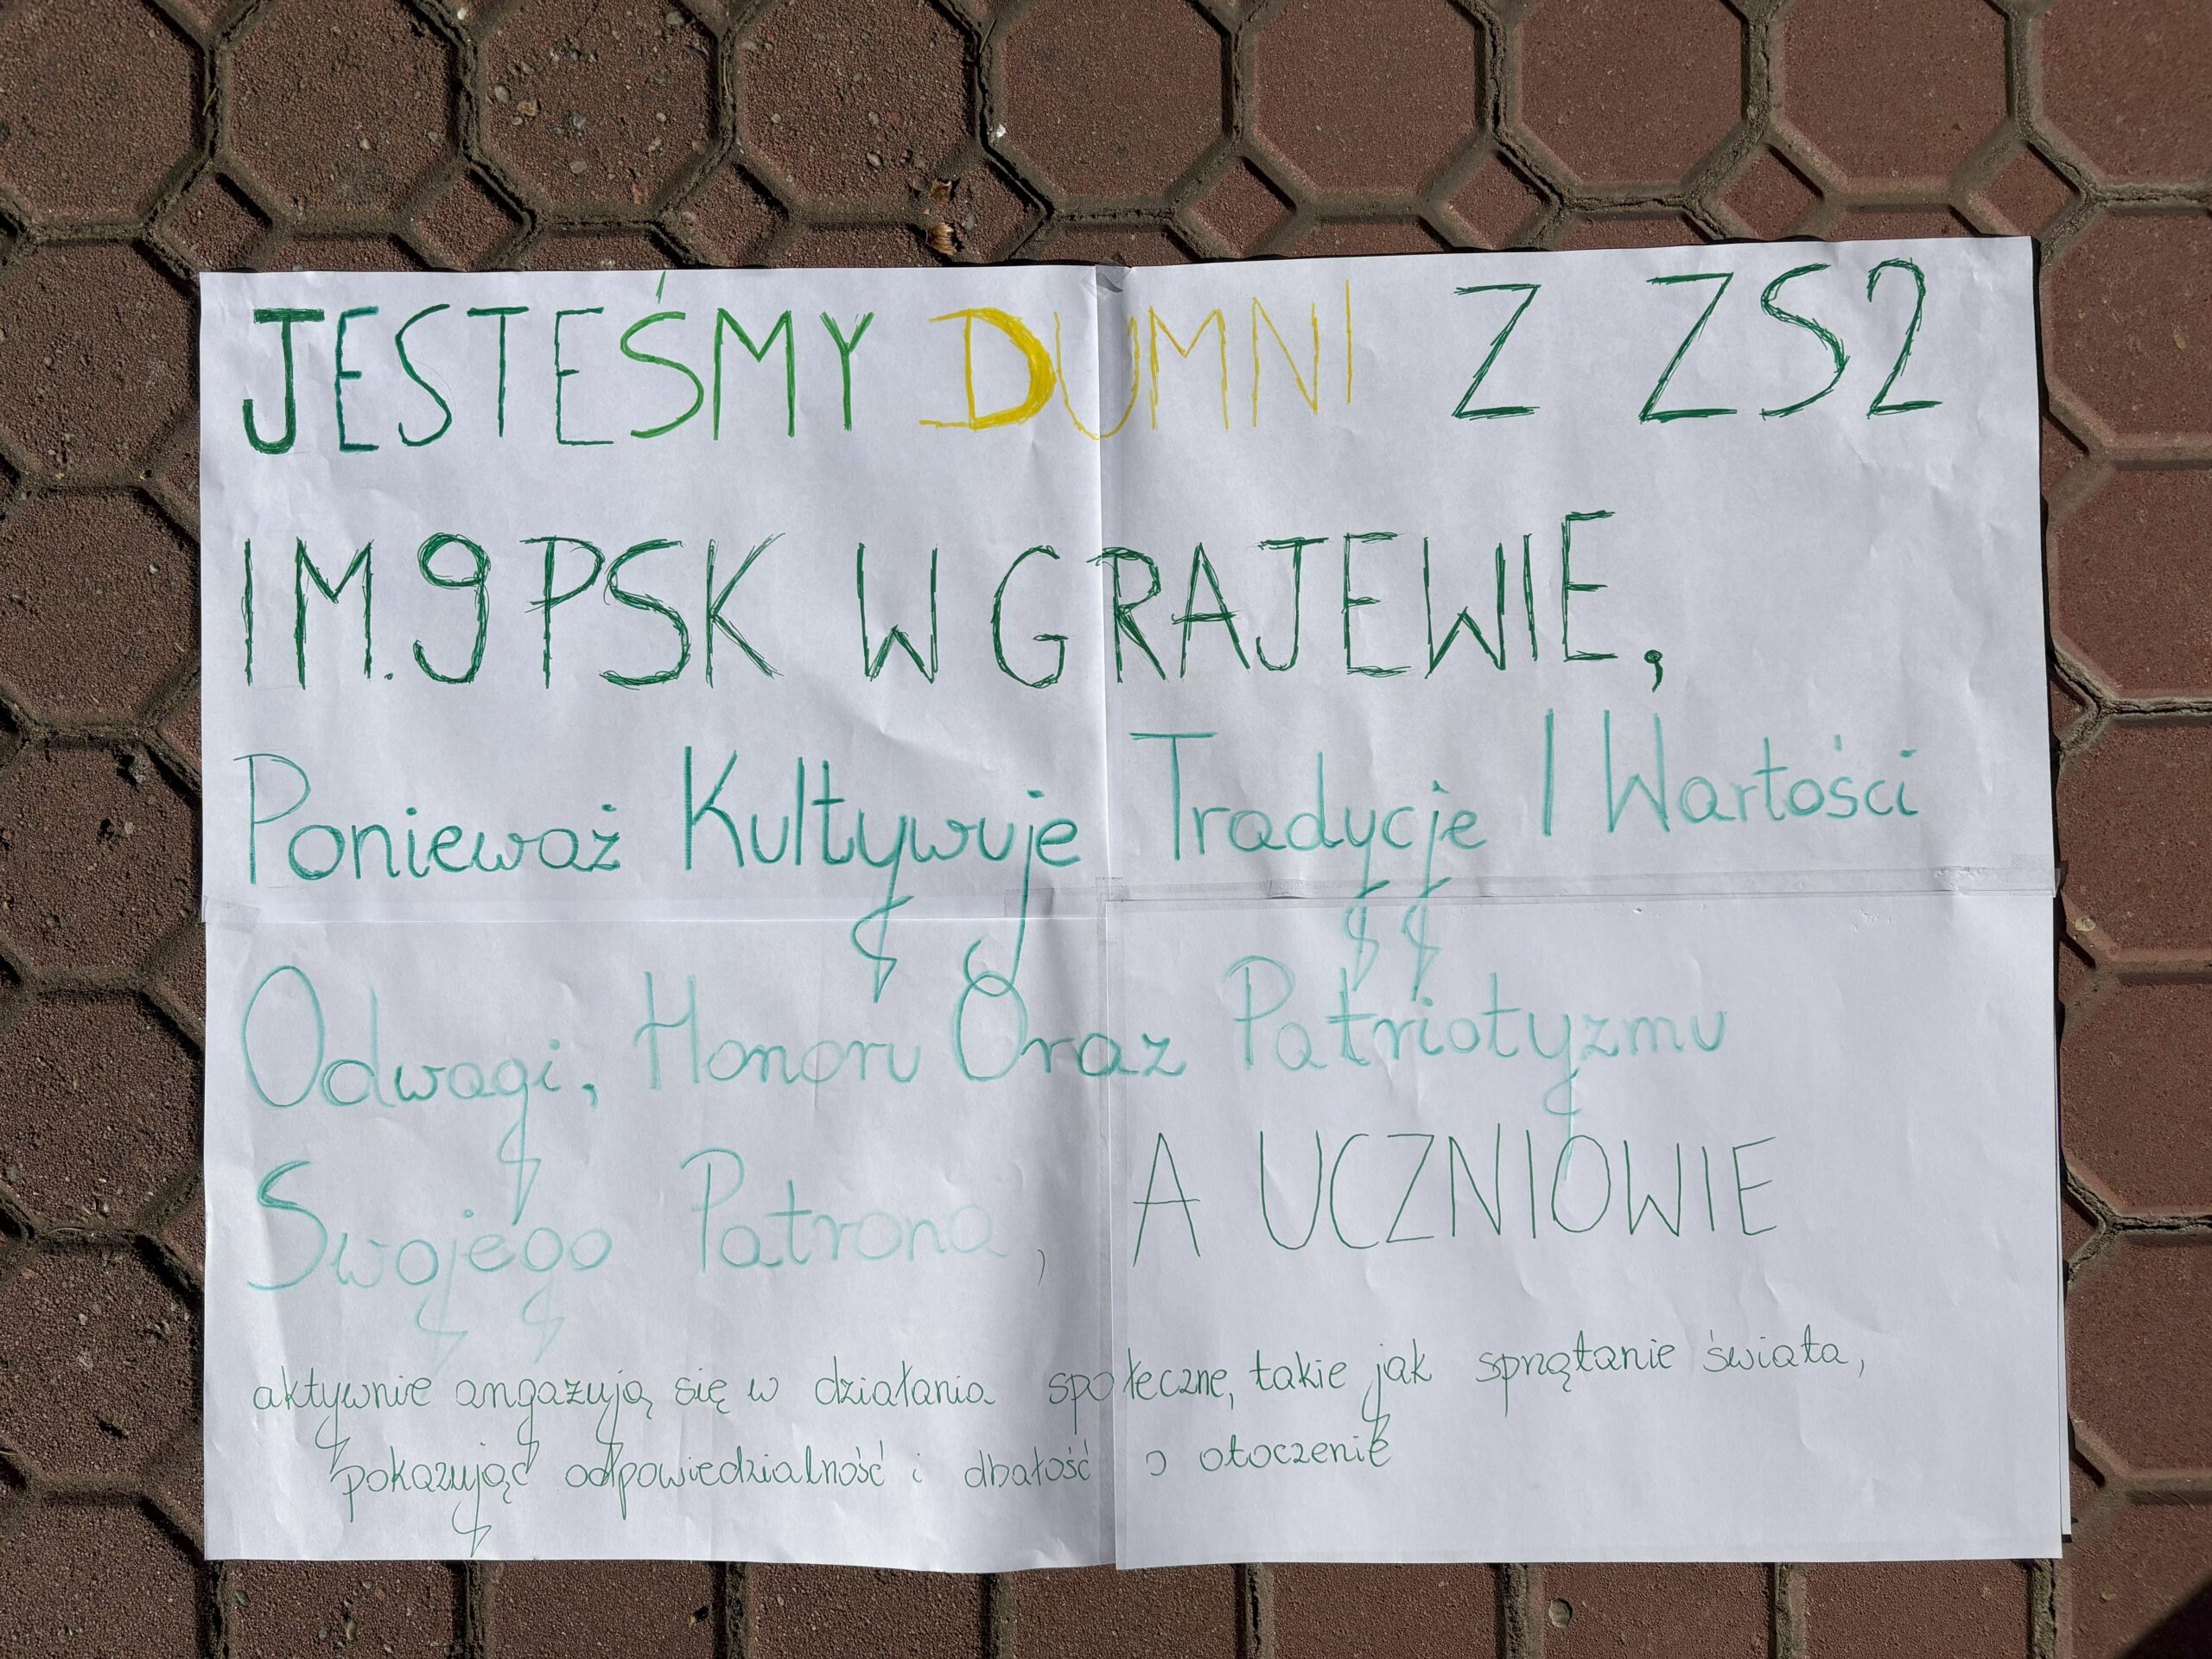 JESTEŚMY DUMNI Z ZS2
IM. 9 PSK W GRAJEWIE,
Ponieważ Kultywuje Tradycje I Wartości
Odwagi, Honoru Oraz Patriotyzmu
Swojego Patrona, A UCZNIOWIE
aktywnie angażują się w działania społeczne, takie jak sprzątanie świata,
pokazując odpowiedzialność i dbałość o otoczenie